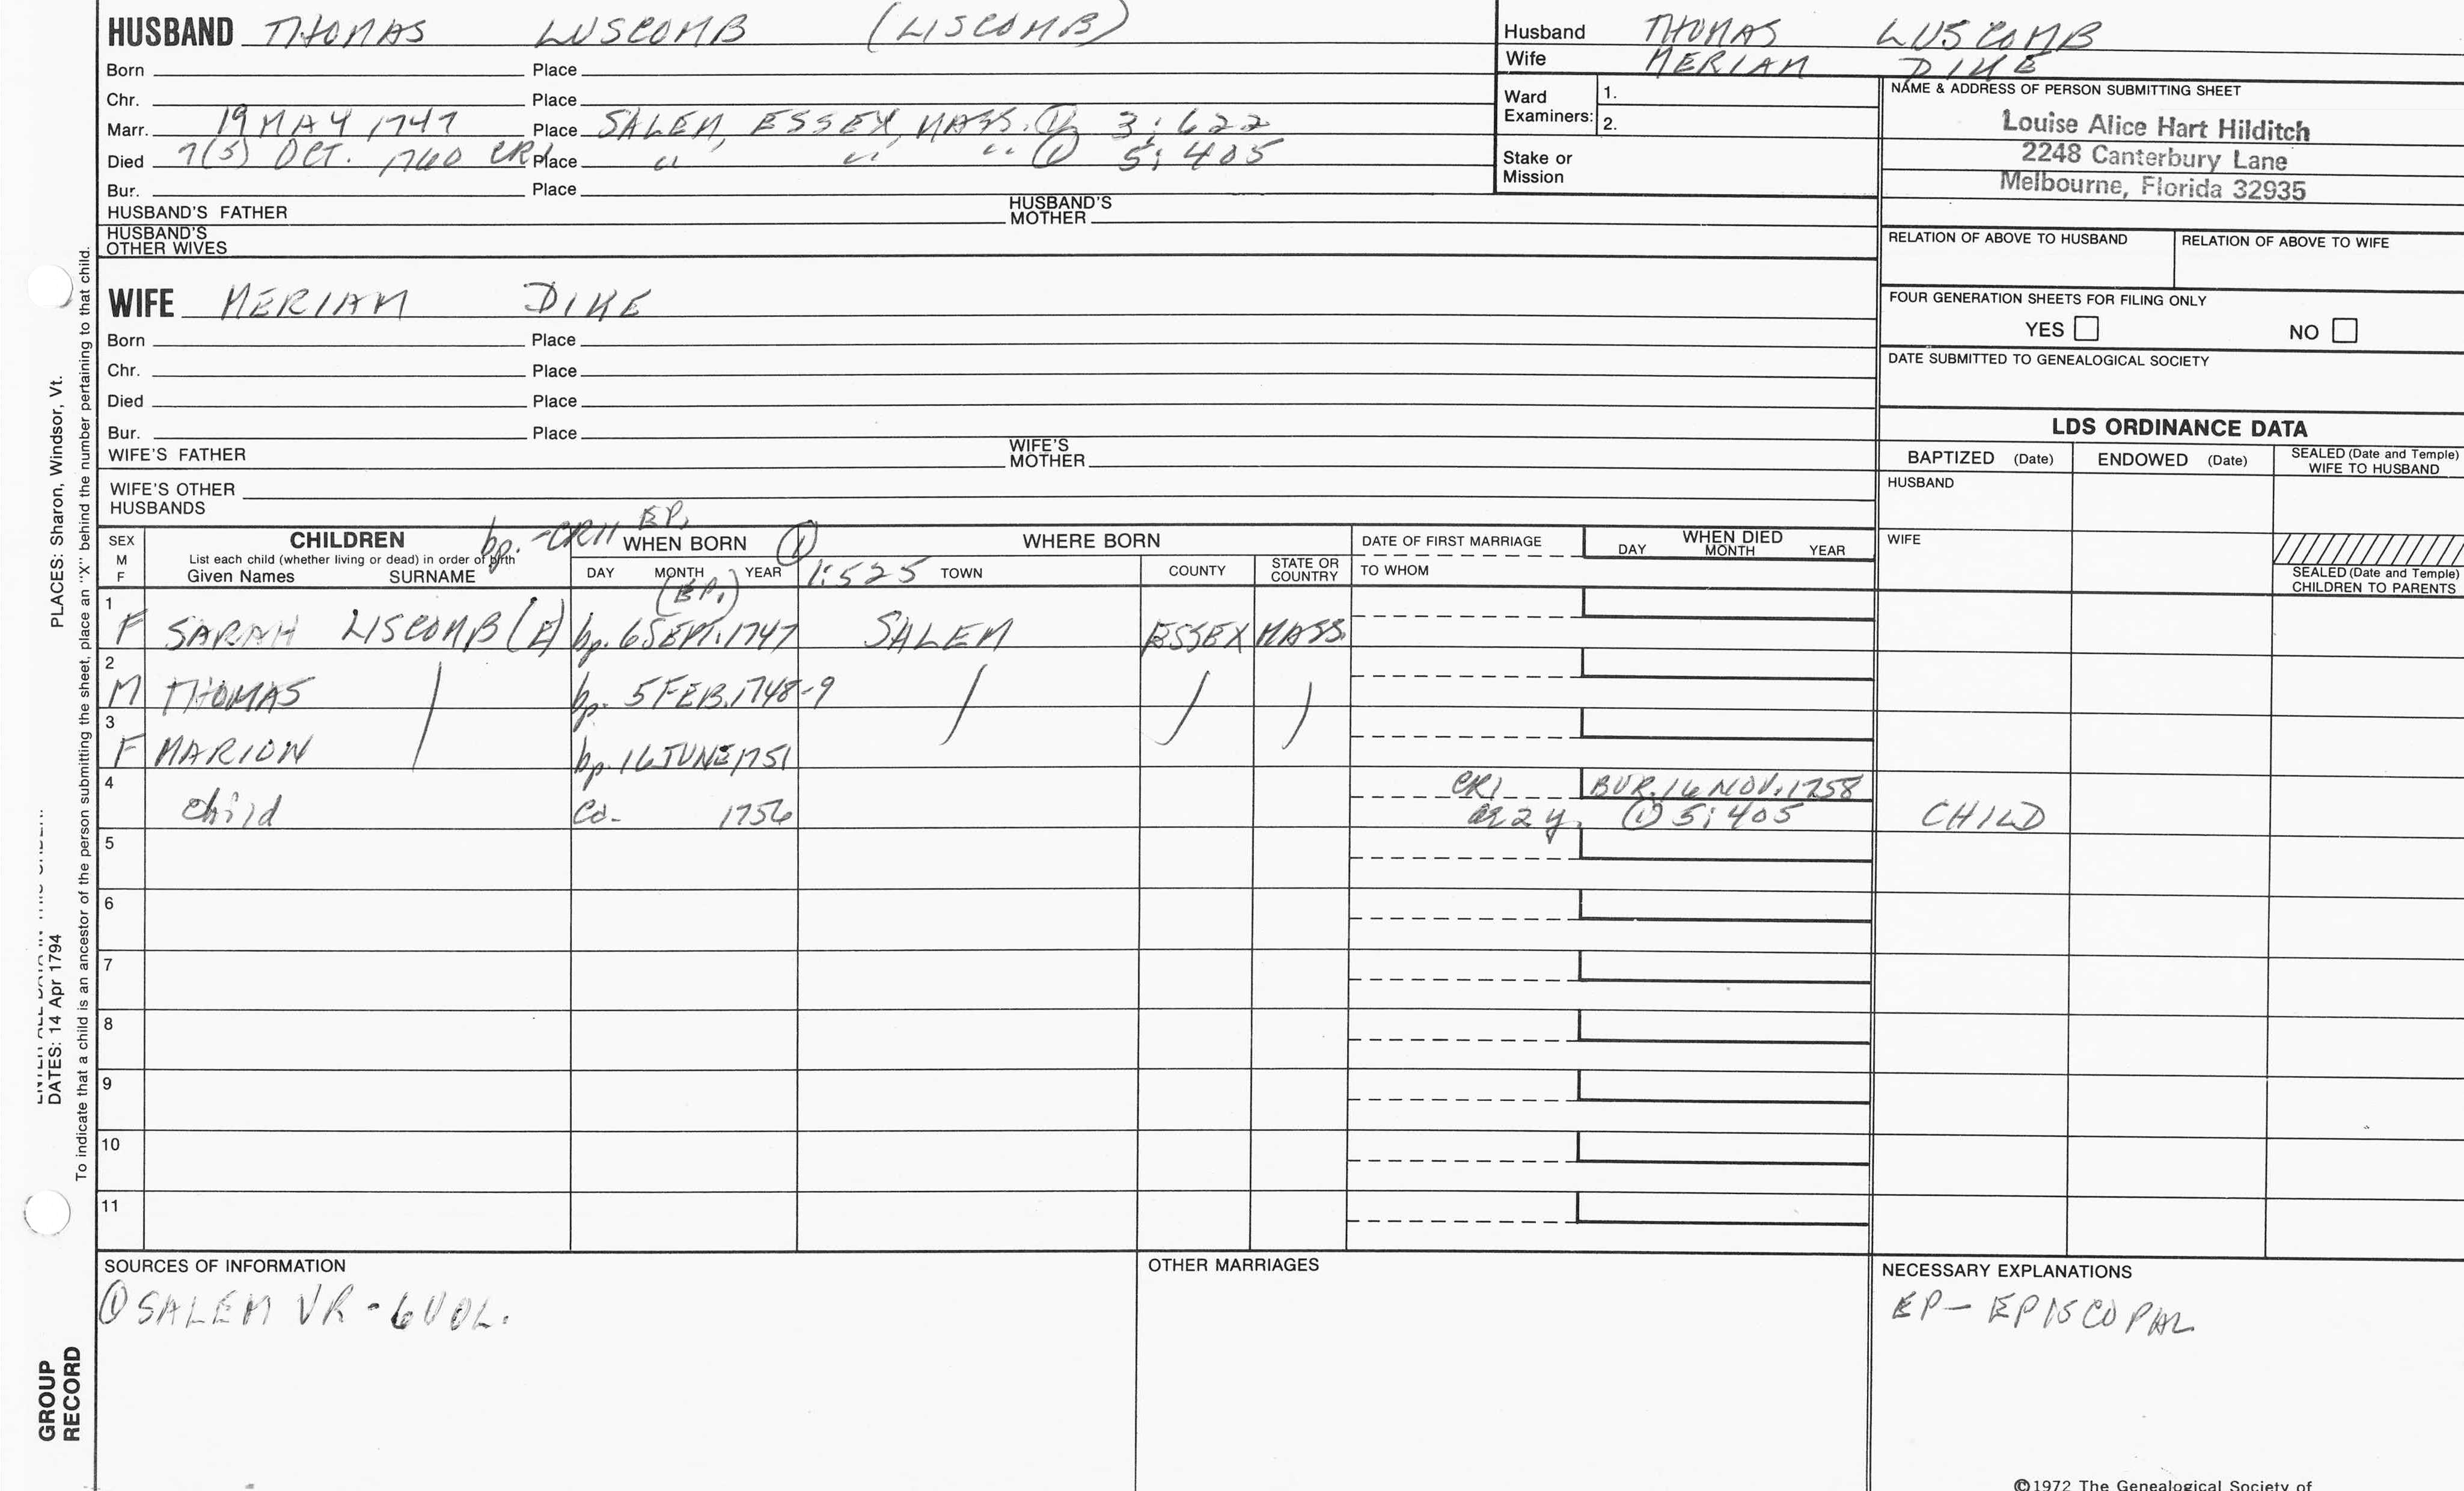 HUSBAND THOMAS LUSCOMB (LISCOMB)
Born Place
Chr. Place
Marr. 19 MAY 1747 Place SALEM, ESSEX, MASS. ① 3:622
Died 7(5) OCT. 1760 CR1 Place " " " ① 5:405
Bur. Place
HUSBAND'S FATHER HUSBAND'S MOTHER
HUSBAND'S OTHER WIVES
Husband THOMAS LUSCOMB
Wife MERIAM DIKE
Ward Examiners: 1.
2.
Stake or Mission
NAME & ADDRESS OF PERSON SUBMITTING SHEET
Louise Alice Hart Hilditch
2248 Canterbury Lane
Melbourne, Florida 32935
RELATION OF ABOVE TO HUSBAND RELATION OF ABOVE TO WIFE
FOUR GENERATION SHEETS FOR FILING ONLY
YES NO
DATE SUBMITTED TO GENEALOGICAL SOCIETY
WIFE MERIAM DIKE
Born Place
Chr. Place
Died Place
Bur. Place
WIFE'S FATHER WIFE'S MOTHER
WIFE'S OTHER HUSBANDS
LDS ORDINANCE DATA
BAPTIZED (Date) ENDOWED (Date) SEALED (Date and Temple) WIFE TO HUSBAND
HUSBAND
WIFE
SEALED (Date and Temple) CHILDREN TO PARENTS
SEX M F
CHILDREN
List each child (whether living or dead) in order of birth
Given Names SURNAME
bp. - CR11 EP.
WHEN BORN ①
DAY MONTH YEAR
(EP.)
WHERE BORN
1:525 TOWN COUNTY STATE OR COUNTRY
DATE OF FIRST MARRIAGE
TO WHOM
WHEN DIED
DAY MONTH YEAR
1 F SARAH LISCOMB(E) bp. 6 SEPT. 1747 SALEM ESSEX MASS.
2 M THOMAS bp. 5 FEB. 1748-9
3 F MARION bp. 16 JUNE 1751
4 child Ca. 1756 CR1 BUR. 16 NOV. 1758
ae 2 y. ① 5:405 CHILD
5
6
7
8
9
10
11
SOURCES OF INFORMATION
① SALEM VR - 6 VOL.
OTHER MARRIAGES
NECESSARY EXPLANATIONS
EP - EPISCOPAL
©1972 The Genealogical Society of
PLACES: Sharon, Windsor, Vt.
DATES: 14 Apr 1794
To indicate that a child is an ancestor of the person submitting the sheet, place an "X" behind the number pertaining to that child.
GROUP RECORD